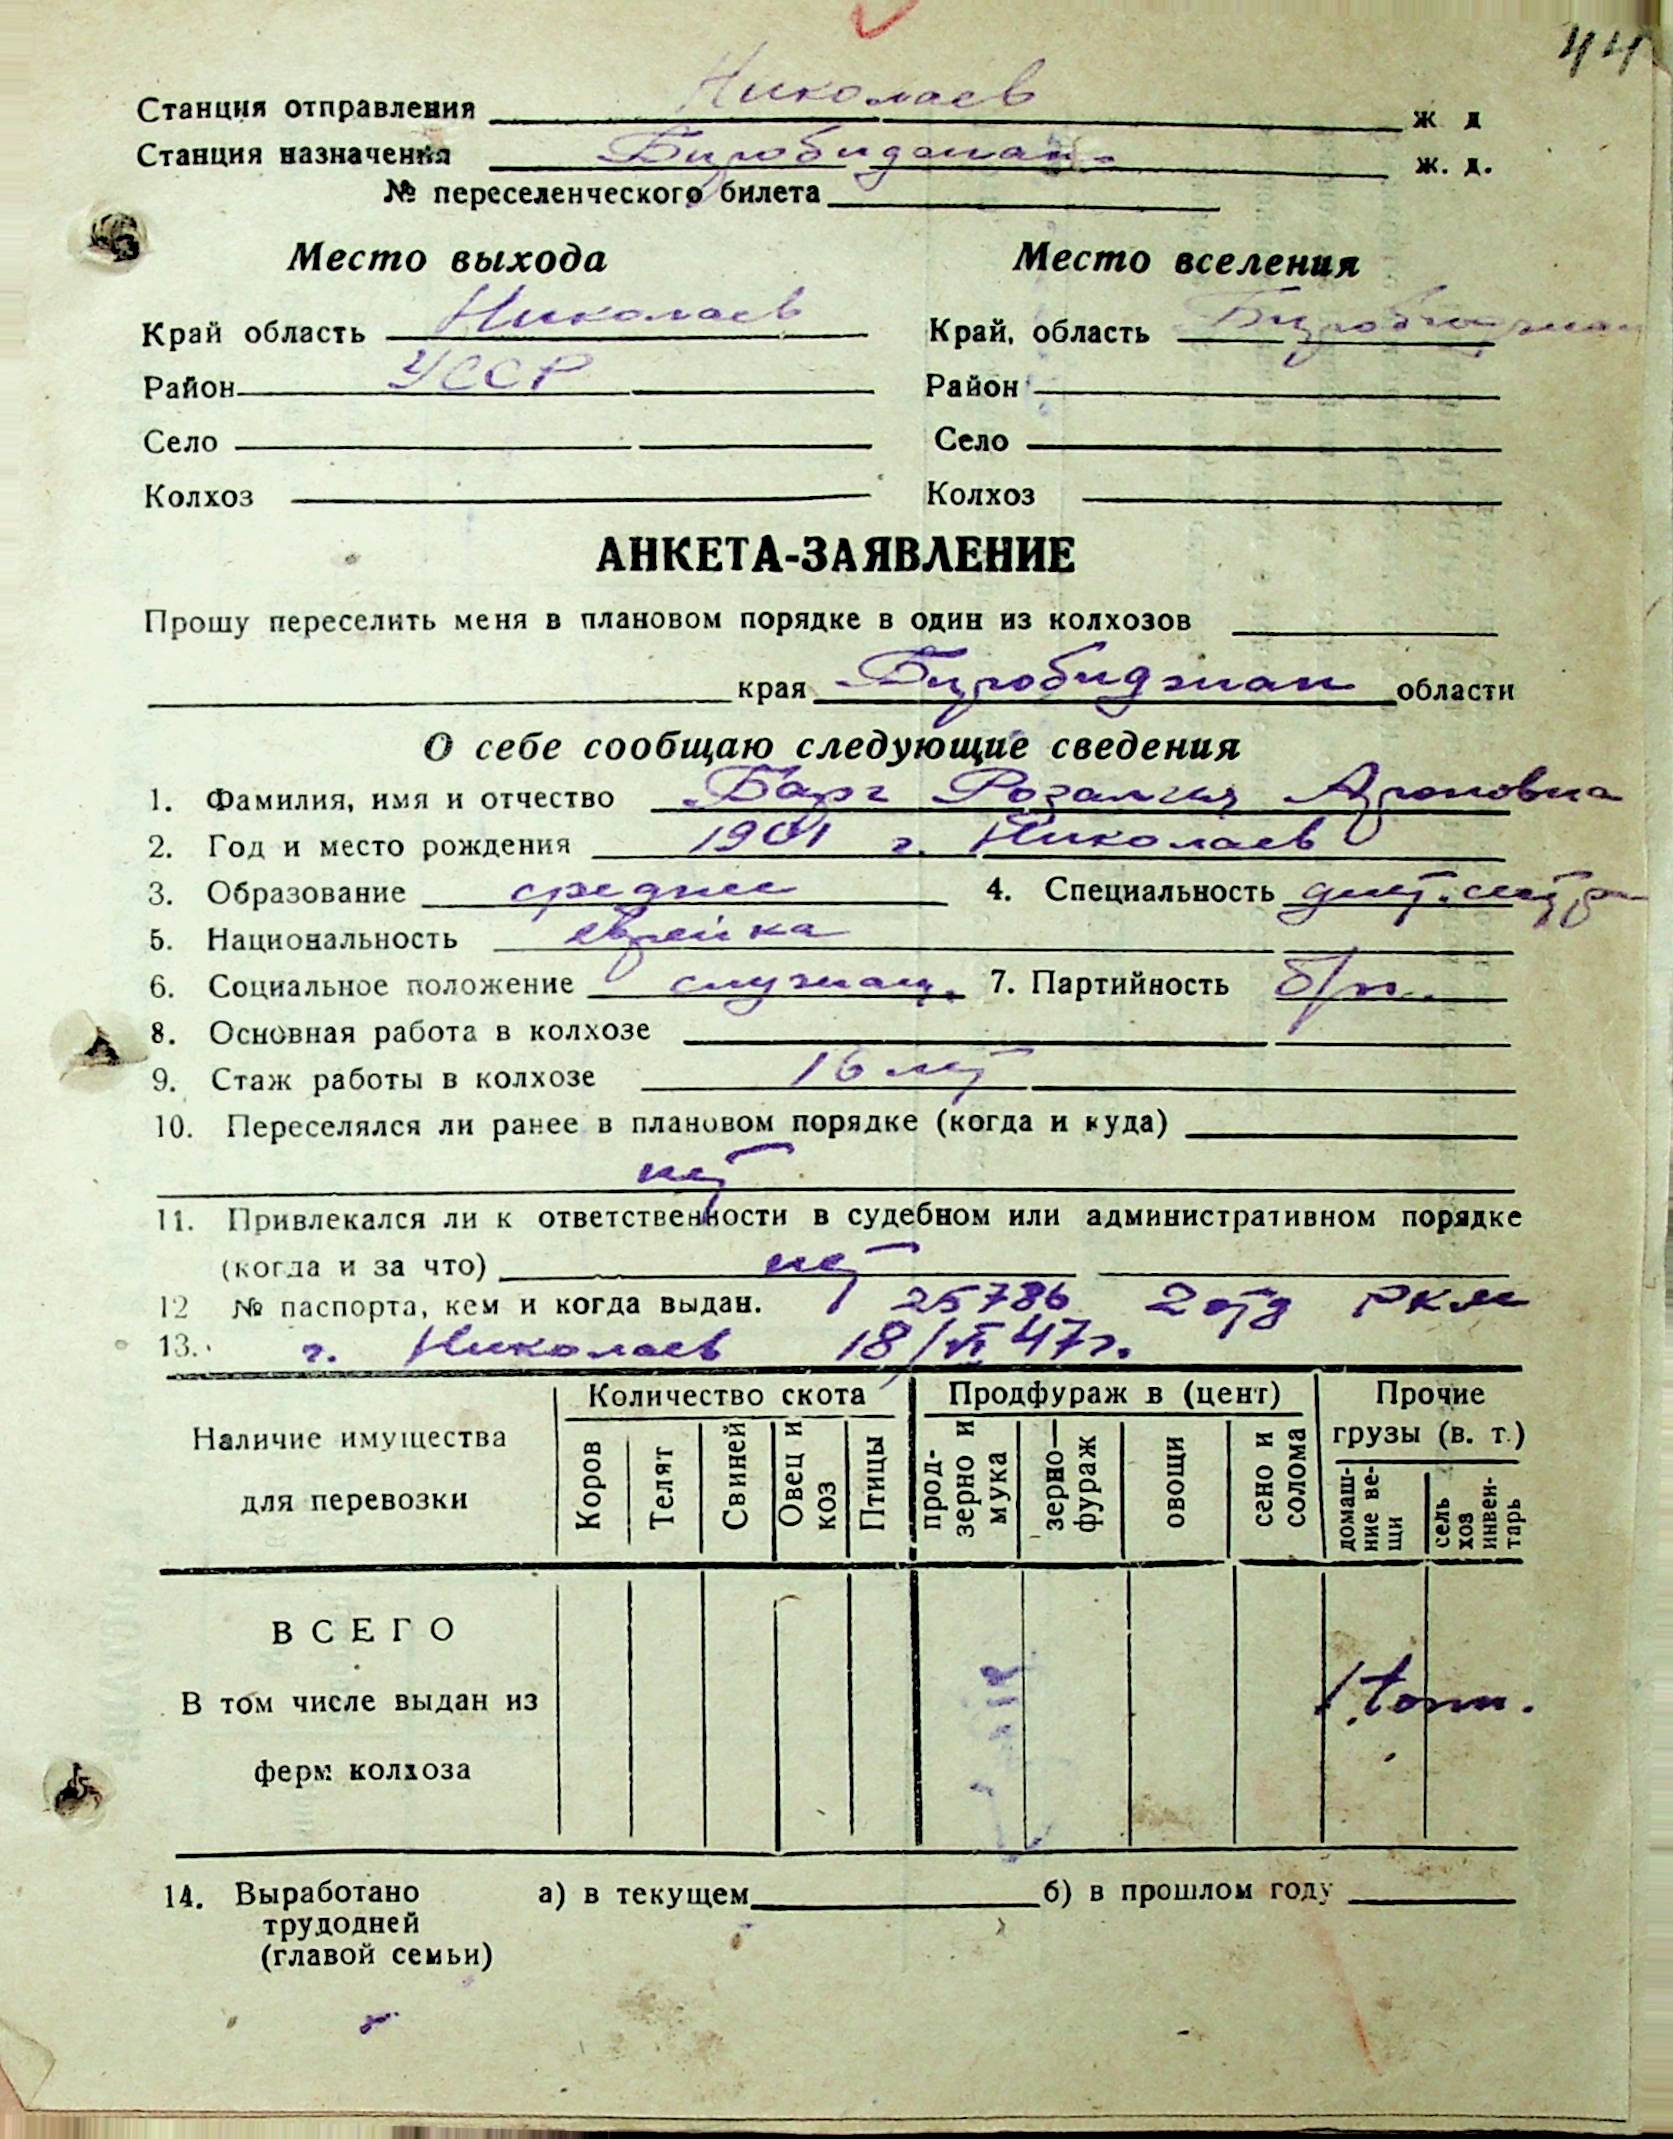 44
Станция отправления Николаев ж д
Станция назначения Биробиджан ж. д.
№ переселенческого билета
Место выхода Место вселения
Край область Николаев Край, область Биробиджан
Район УССР Район
Село Село
Колхоз Колхоз
АНКЕТА-ЗАЯВЛЕНИЕ
Прошу переселить меня в плановом порядке в один из колхозов
края Биробиджан области
О себе сообщаю следующие сведения
1. Фамилия, имя и отчество Барг Розалия Ароновна
2. Год и место рождения 1901 г. Николаев
3. Образование среднее 4. Специальность
5. Национальность еврейка
6. Социальное положение служащ. 7. Партийность б/п.
8. Основная работа в колхозе
9. Стаж работы в колхозе 16 лет
10. Переселялся ли ранее в плановом порядке (когда и куда)
нет
11. Привлекался ли к ответственности в судебном или административном порядке
(когда и за что) нет
12 № паспорта, кем и когда выдан. 25786 2 отд РКМ
13. г. Николаев 18/VI 47г.
Наличие имущества для перевозки
Количество скота Продфураж в (цент) Прочие грузы (в. т.)
Коров Телят Свиней Овец и коз Птицы прод-зерно и мука зерно-фураж овощи сено и солома домаш-ние ве-щи сель хоз инвен-тарь
ВСЕГО
В том числе выдан из 1 тонн.
ферм колхоза
14. Выработано а) в текущем б) в прошлом году
трудодней
(главой семьи)